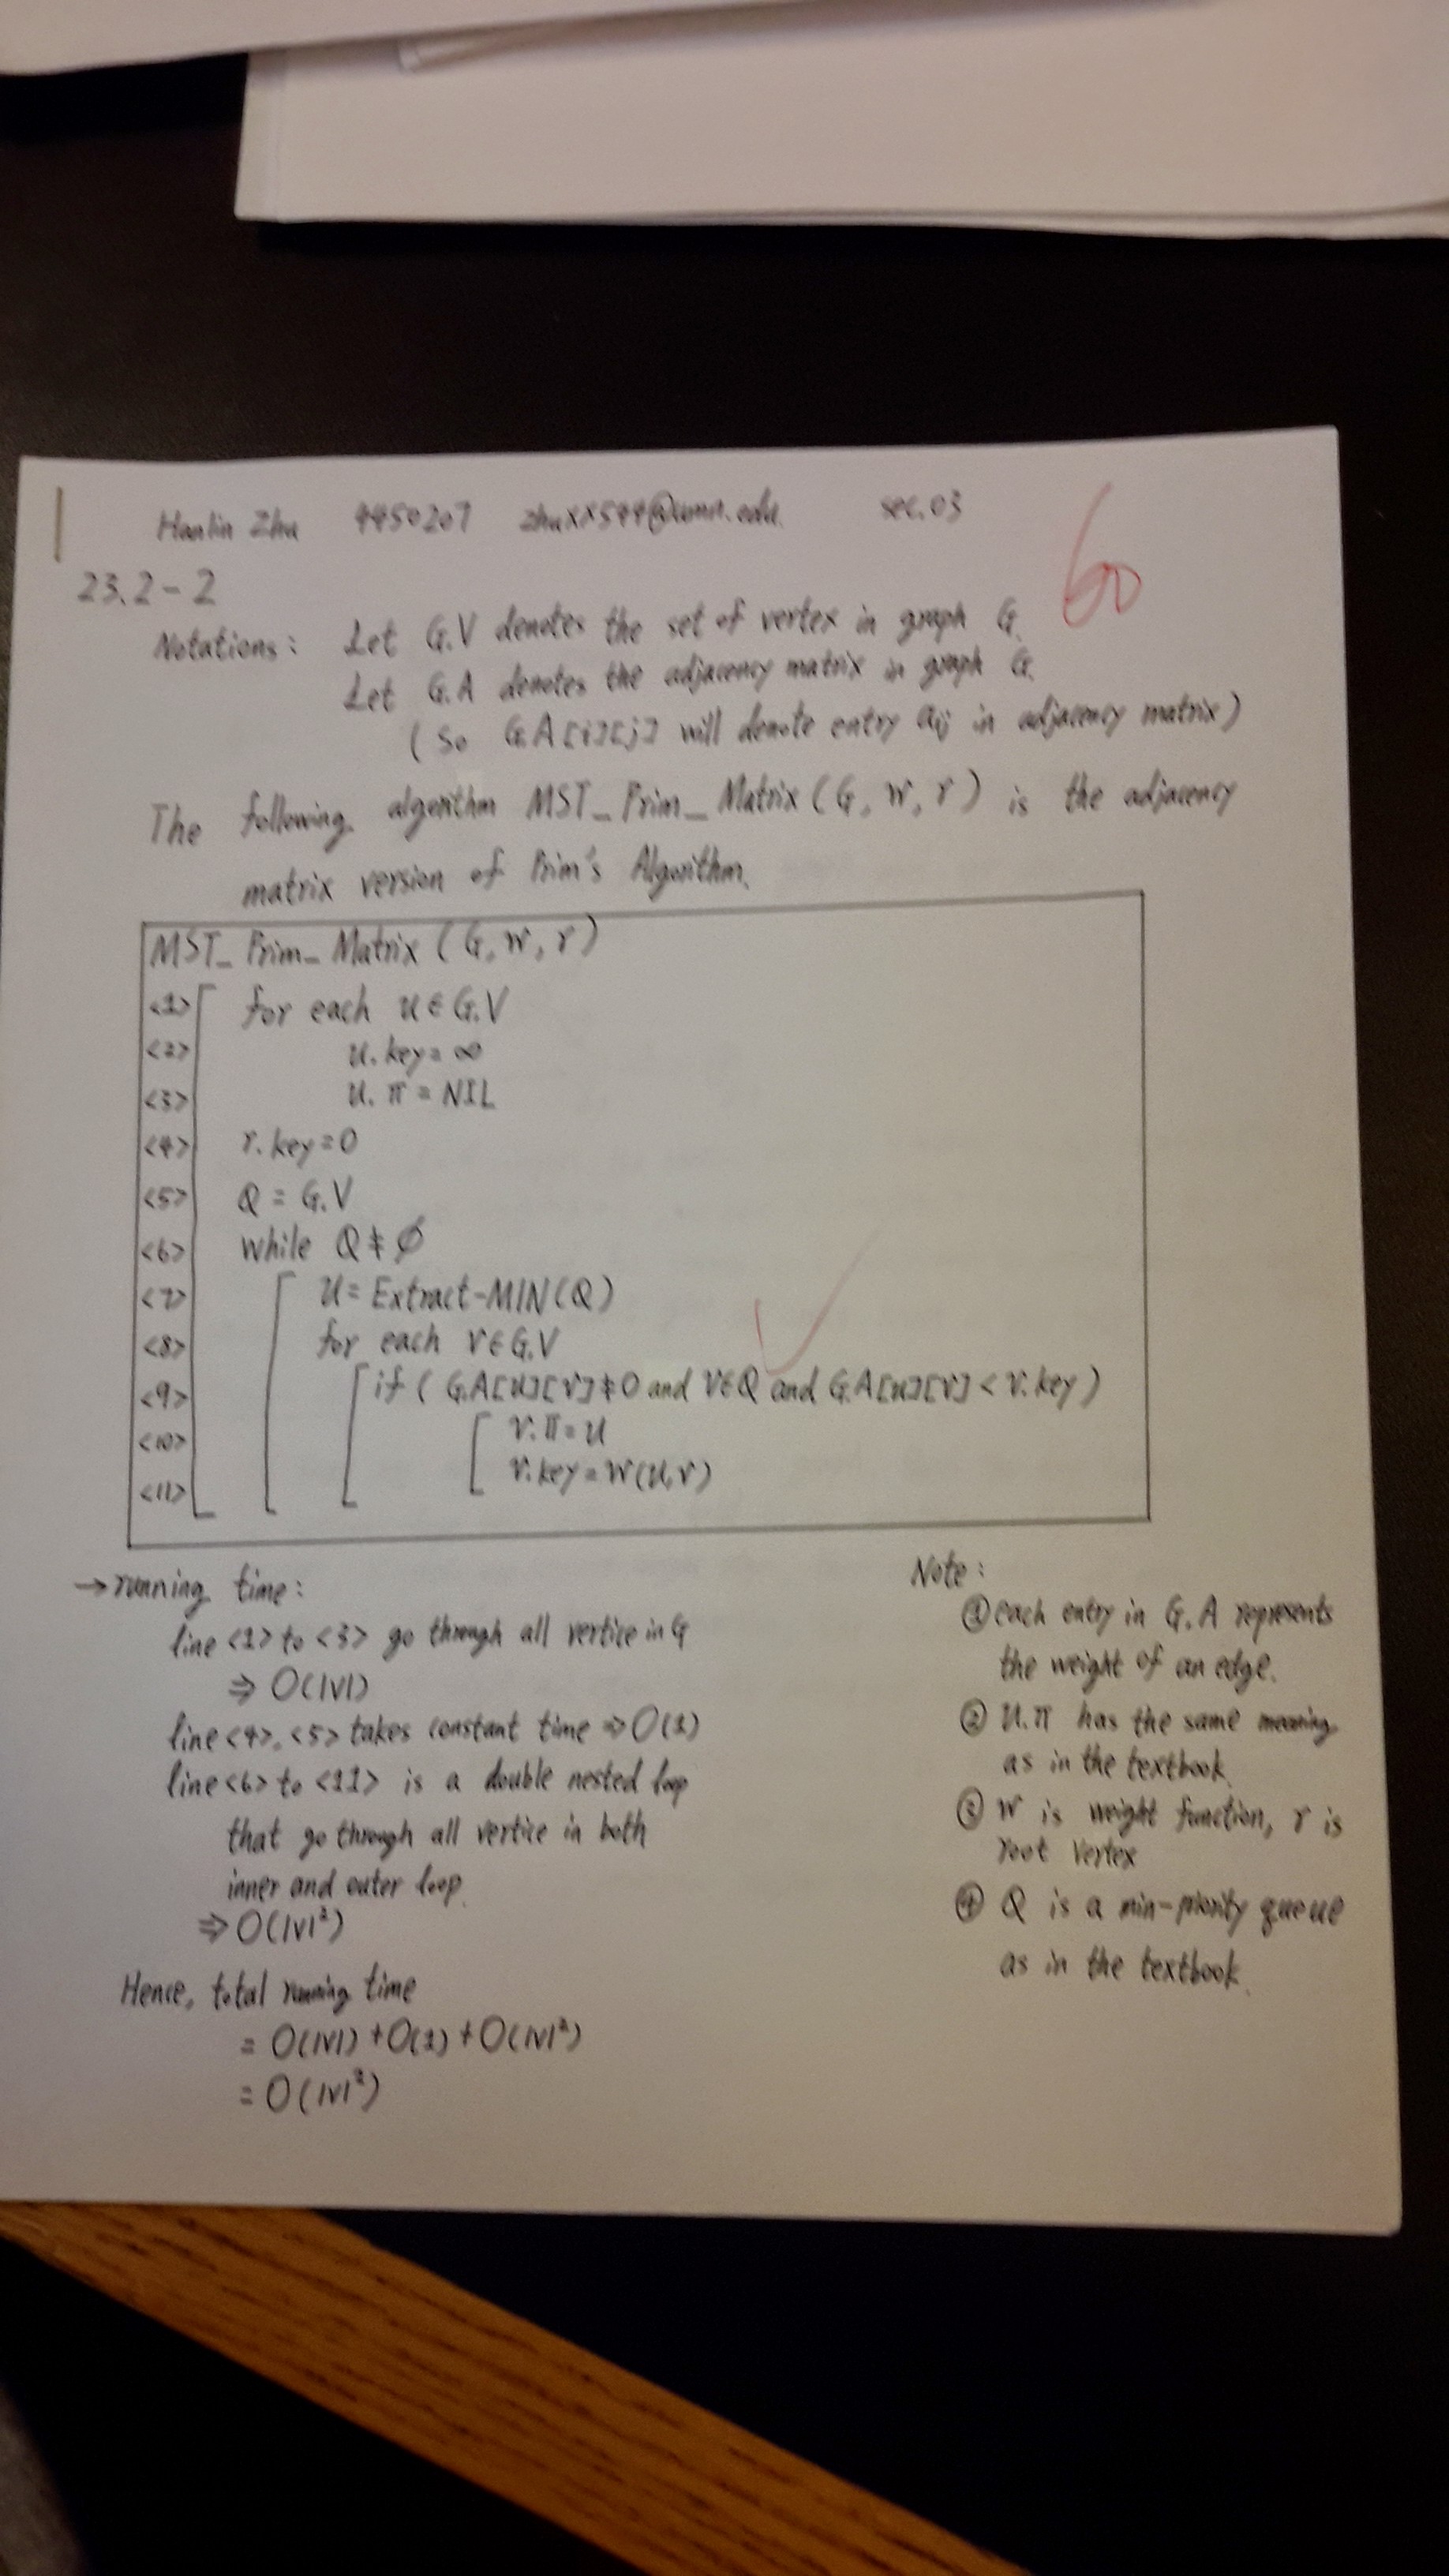 Hanlin Zhu 4450207 zhuxx544@umn.edu sec.03
60
23.2-2
Notations: Let G.V denotes the set of vertex in graph G.
Let G.A denotes the adjacency matrix in graph G.
(So G.A[i][j] will denote entry aij in adjacency matrix)
The following algorithm MST_Prim_Matrix(G, w, r) is the adjacency
matrix version of Prim's Algorithm.
MST_Prim_Matrix (G, w, r)
<1> for each u∈G.V
<2> u.key=∞
<3> u.π=NIL
<4> r.key=0
<5> Q = G.V
<6> while Q≠∅
<7> u=Extract-MIN(Q)
<8> for each v∈G.V
<9> if (G.A[u][v]≠0 and v∈Q and G.A[u][v] < v.key)
<10> v.π=u
<11> v.key=w(u,v)
→running time:
line <1> to <3> go through all vertice in G
⇒ O(|V|)
line<4>,<5> takes constant time ⇒ O(1)
line<6> to <11> is a double nested loop
that go through all vertice in both
inner and outer loop.
⇒ O(|V|²)
Hence, total running time
= O(|V|)+O(1)+O(|V|²)
= O(|V|²)
Note:
① each entry in G.A represents
the weight of an edge.
② u.π has the same meaning
as in the textbook.
③ w is weight function, r is
root vertex
④ Q is a min-priority queue
as in the textbook.